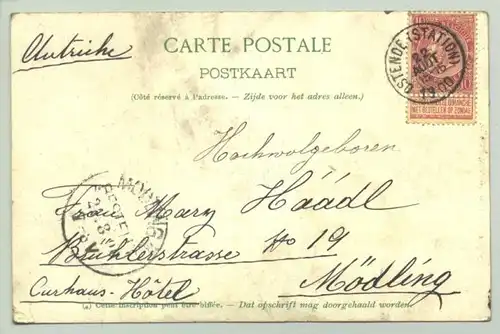 Autriche
CARTE POSTALE
POSTKAART
(Côté réservé à l'adresse. – Zijde voor het adres alleen.)
OSTENDE (STATION)
22
AOUT
NIET BESTELLEN OP ZONDAG
Hochwolgeboren
Frau Mary Háádl
Bühlerstrasse No 19
Curhaus-Hôtel
Mödling
(a) Cette inscription peut être biffée. – Dat opschrift mag doorgehaald worden.